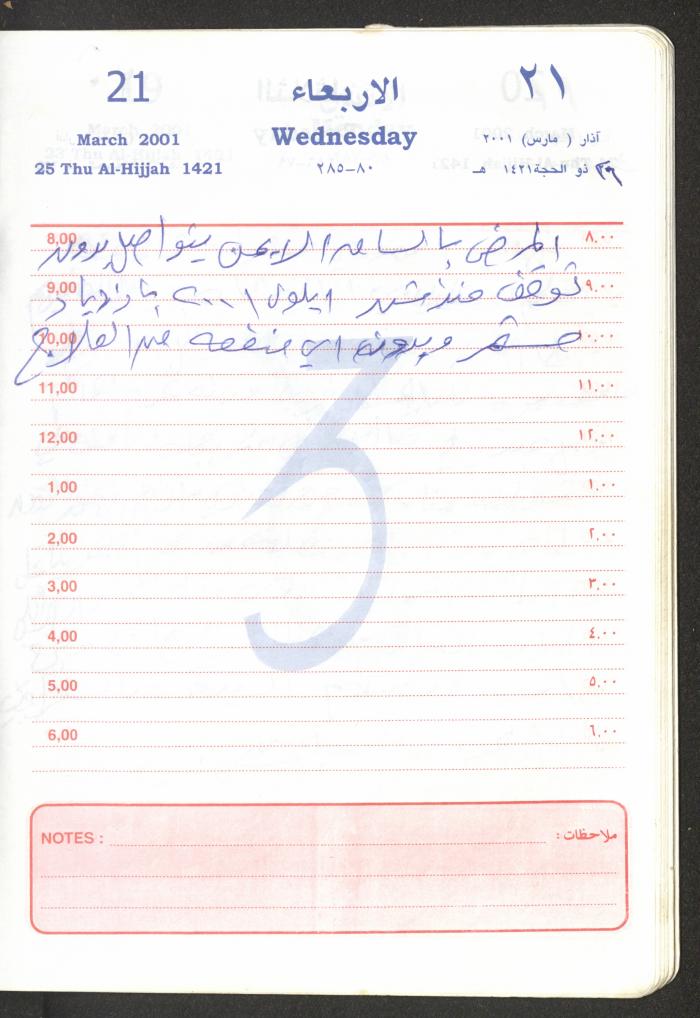 21 الاربعاء ٢١
March 2001 Wednesday آذار ( مارس ) ٢٠٠١
25 Thu Al-Hijjah 1421 ٢٨٥-٨٠ ذو الحجة ١٤٢١ هـ
8,00 المرض بالساعد الايمن يتواصل بدون ٨.٠٠
9,00 توقف منذ شهر ايلول ٢٠٠١ بازدياد ٩.٠٠
10,00 مستمر وبدون اي منفعه من العلاج ١٠.٠٠
11,00 ١١.٠٠
12,00 ١٢.٠٠
1,00 ١.٠٠
2,00 ٢.٠٠
3,00 ٣.٠٠
4,00 ٤.٠٠
5,00 ٥.٠٠
6,00 ٦.٠٠
3
NOTES : ملاحظات :